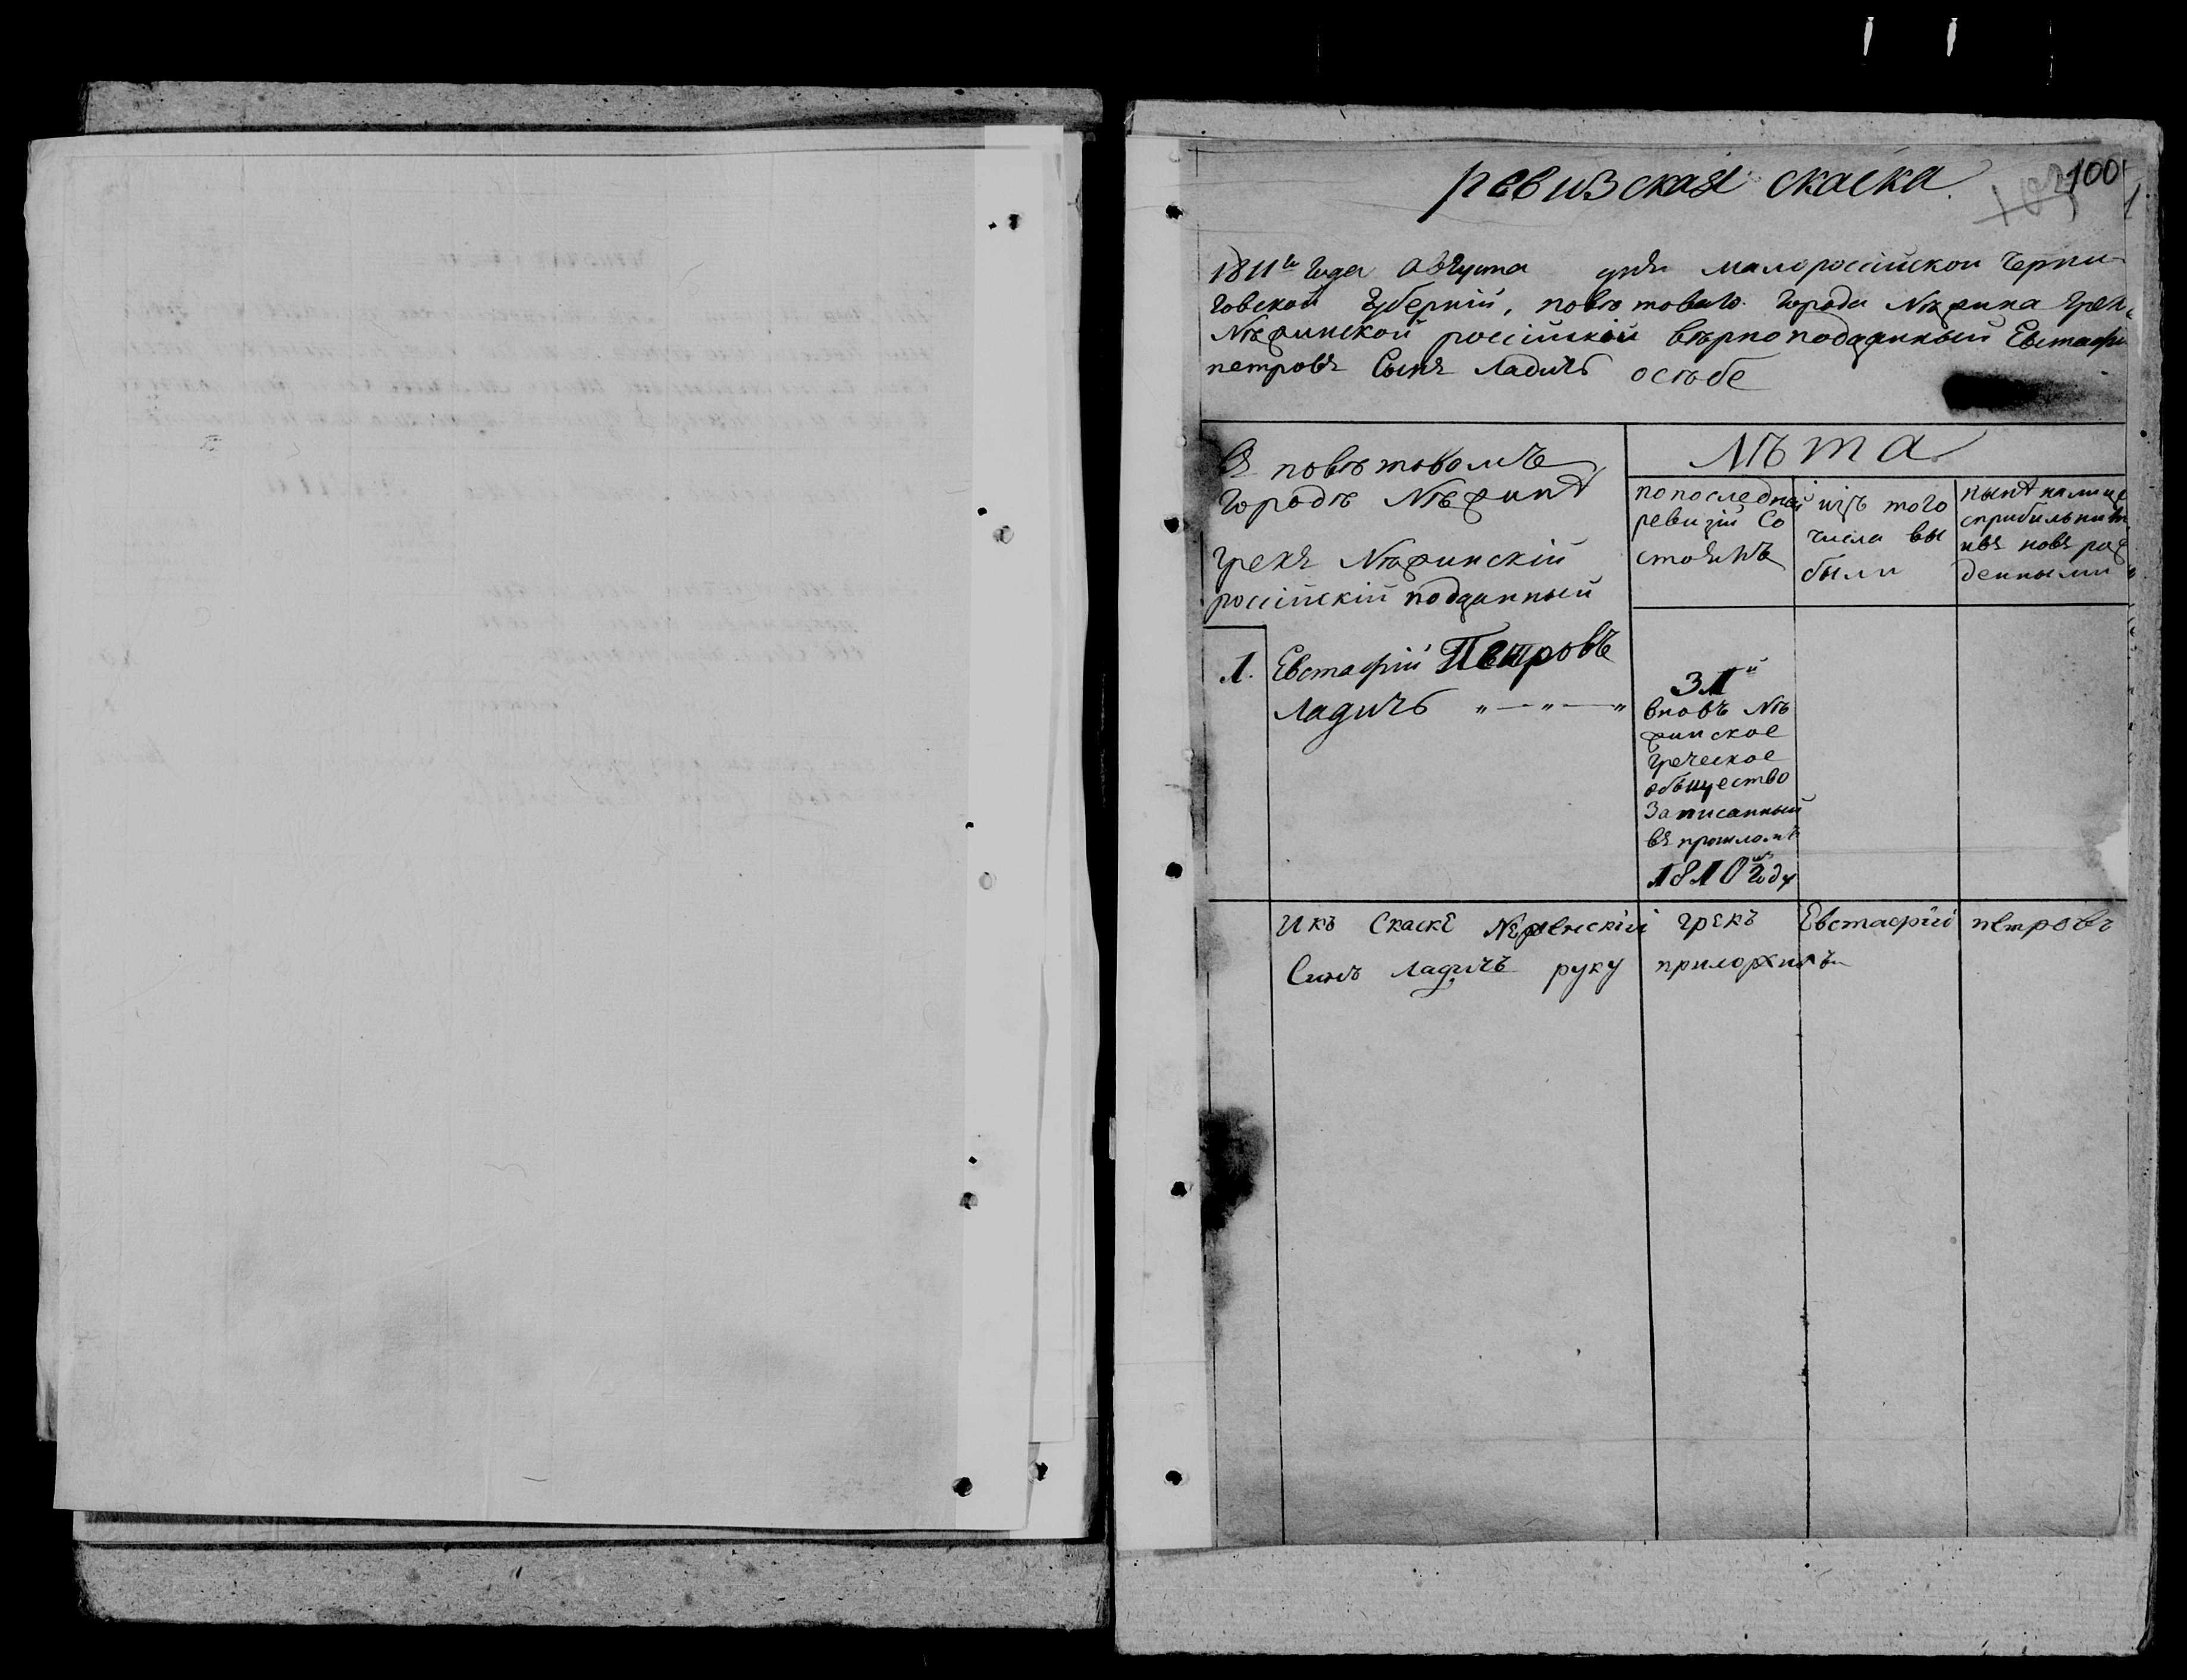 ревизская скаска
100
103
1811го года августа дня малороссийской Черни-
говской губернии, повѣтоваго города Нѣжина грек
Нѣжинской россійскій вѣрноподданный Евстафи
петровъ Сынъ Ладичъ осѣбе
В повѣтовомъ
городѣ Нѣжинѣ
грекъ Нѣжинскій
россійскій подданный
лѣта
попоследней
ревизіи Со
стоялъ
изъ того
числа вы
были
нынѣ налице
сприбылыми
ивъ новъ рож
денными
1. Евстафій Петровъ
Ладичъ
31
вновъ Нѣ
жинское
греческое
общество
Записанный
въ прошломъ
1810мъ году
Икъ Скаскѣ Нѣженскій грекъ Евстафій петровъ
Синъ Ладичъ руку приложилъ